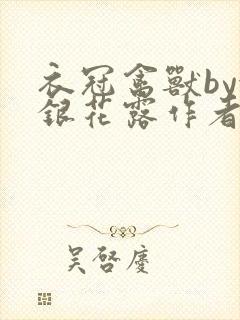 衣冠禽獸by
銀花露作者
吴啓慶